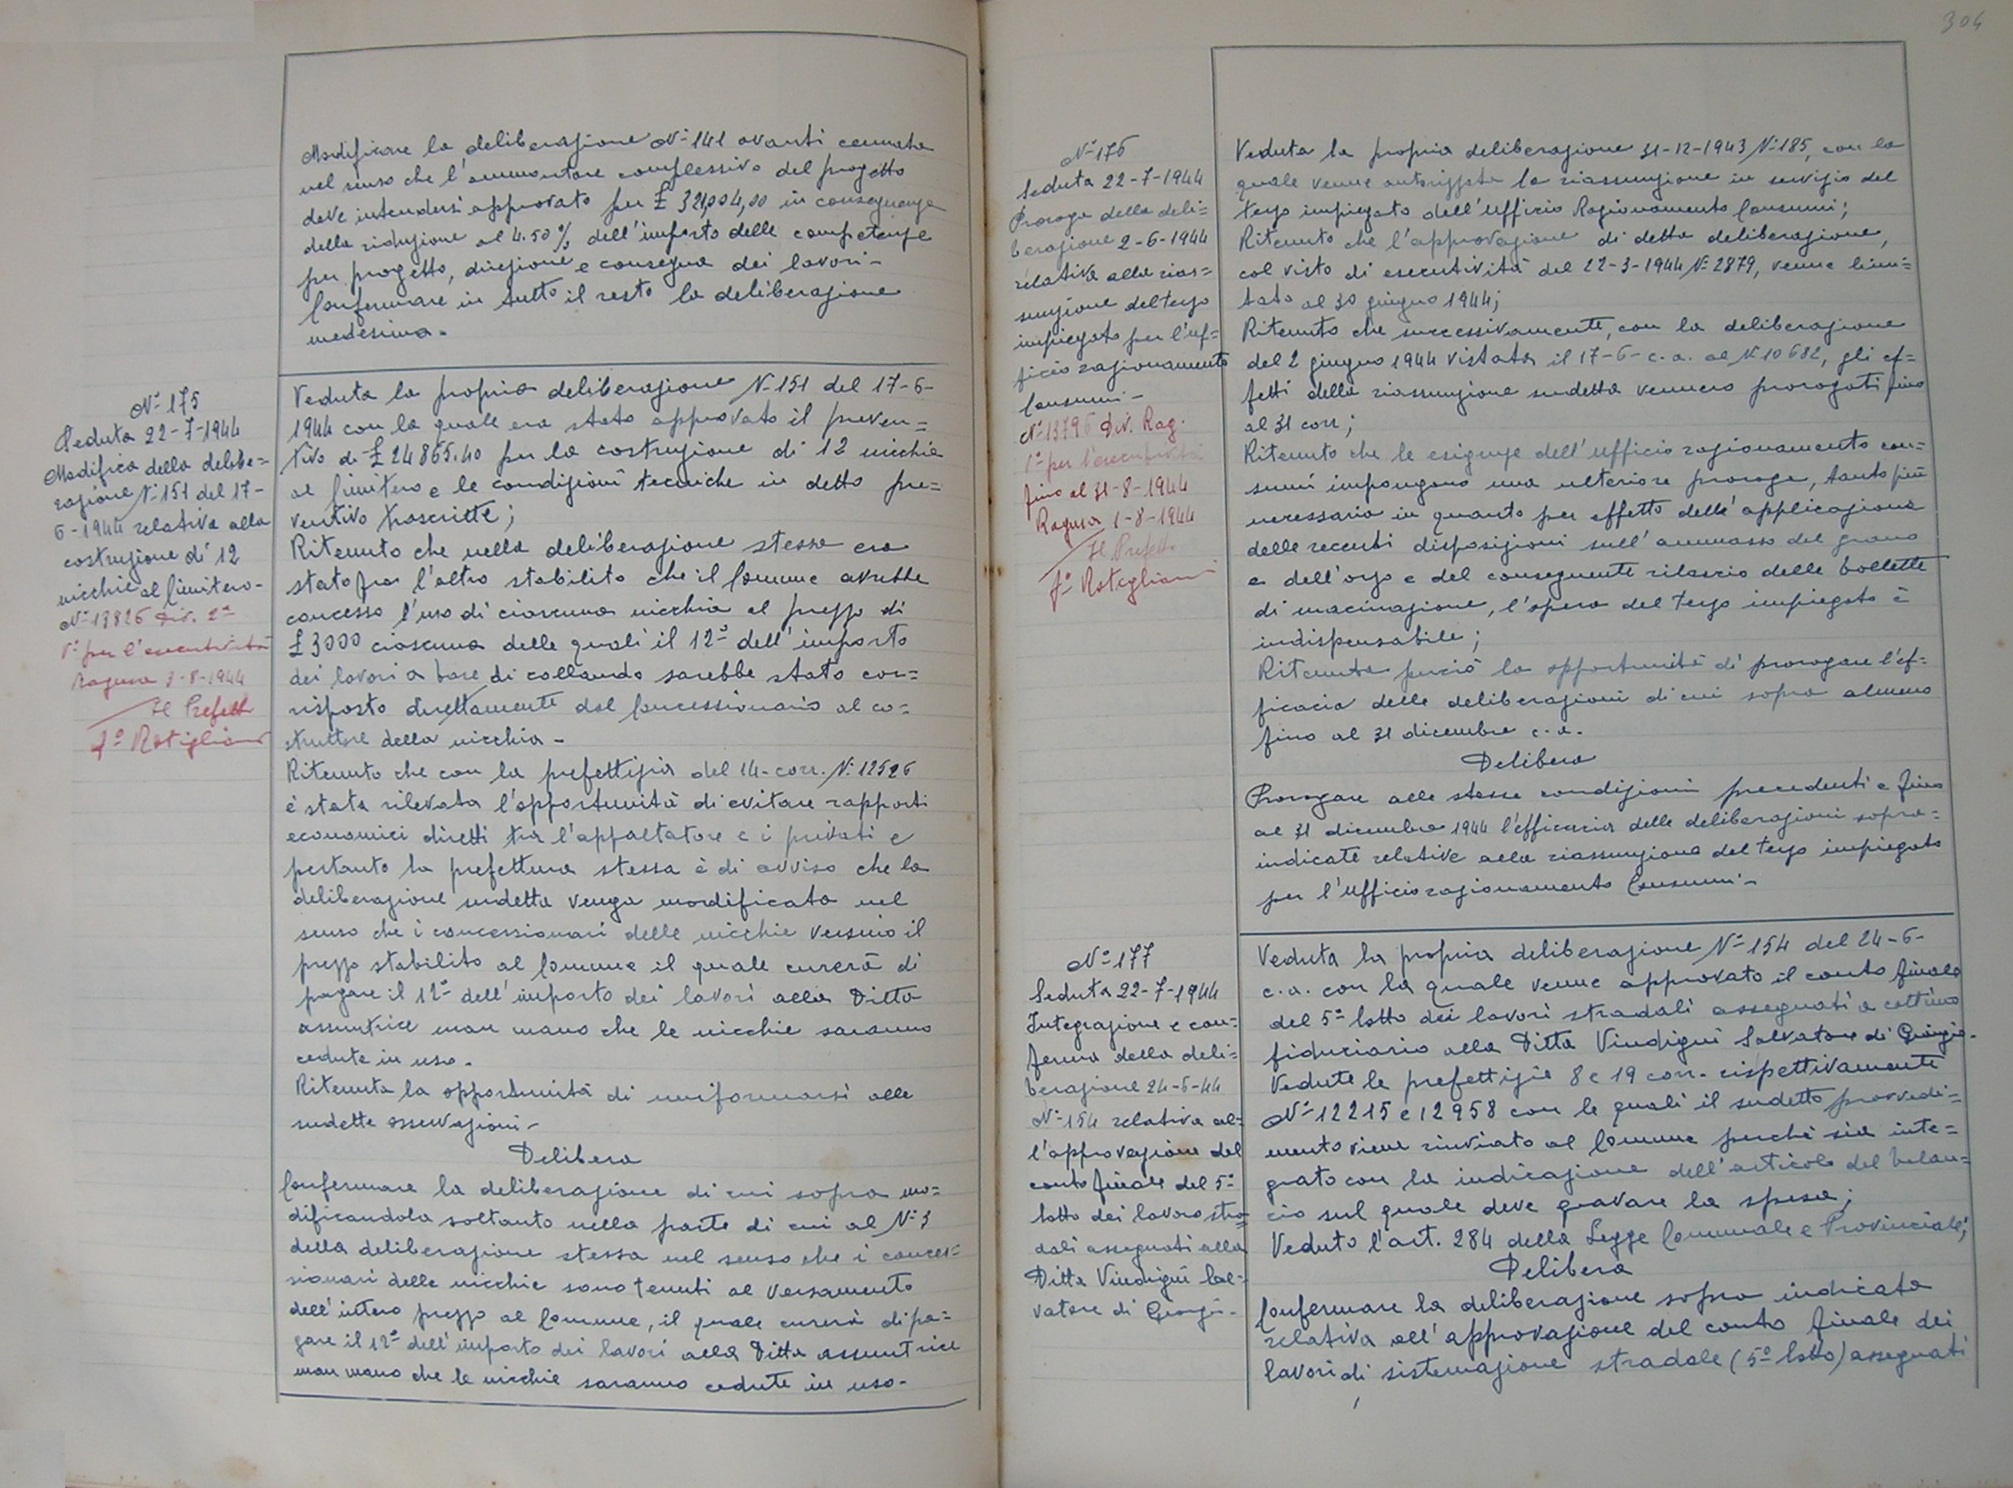 Modificare la deliberazione N° 141 avanti cennata
nel senso che l'ammontare complessivo del progetto
deve intendersi approvato per £ 321,004,00 in conseguenza
della riduzione al 4.50% dell'importo delle competenze
per progetto, direzione e consegna dei lavori-
Confermare in tutto il resto la deliberazione
medesima.
N° 175
Seduta 22-7-1944
Modifica della delibe=
razione N° 151 del 17-
6-1944 relativa alla
costruzione di 12
nicchie al Cimitero-
N° 13826 Div. 2ª
V° per l'esecutività
Ragusa 3-8-1944
Il Prefetto
Veduta la propria deliberazione N° 151 del 17-6-
1944 con la quale era stato approvato il preven=
tivo di £ 24865.40 per la costruzione di 12 nicchie
al Cimitero e le condizioni tecniche in detto pre=
ventivo trascritte;
Ritenuto che nella deliberazione stessa era
stato fra l'altro stabilito che il Comune avrebbe
concesso l'uso di ciascuna nicchia al prezzo di
£ 3000 ciascuna delle quali il 12° dell'importo
dei lavori a base di collaudo sarebbe stato cor=
risposto direttamente dal Concessionario al co=
struttore della nicchia -
Ritenuto che con la prefettizia del 14-corr. N° 12526
è stata rilevata l'opportunità di evitare rapporti
economici diretti tra l'appaltatore e i privati e
pertanto la prefettura stessa è di avviso che la
deliberazione sudetta venga modificata nel
senso che i concessionari delle nicchie versino il
prezzo stabilito al Comune il quale curerà di
pagare il 12° dell'importo dei lavori alla Ditta
assuntrice man mano che le nicchie saranno
cedute in uso.
Ritenuta la opportunità di uniformarsi alle
sudette osservazioni-
Delibera
Confermare la deliberazione di cui sopra mo=
dificandola soltanto nella parte di cui al N° 3
della deliberazione stessa nel senso che i conces=
sionari delle nicchie sono tenuti al versamento
dell'intero prezzo al Comune, il quale curerà di pa=
gare il 12° dell'importo dei lavori alla Ditta assuntrice
man mano che le nicchie saranno cedute in uso.
304
N° 176
Seduta 22-7-1944
Proroga della deli=
berazione 2-6-1944
relativa alla rias=
sunzione del terzo
impiegato per l'uf=
ficio razionamento
Consumi-
N° 13796 Div. Rag.
V° per l'esecutività
fino al 31-8-1944
Ragusa 1-8-1944
Il Prefetto
Veduta la propria deliberazione 31-12-1943 N° 185, con la
quale venne autorizzata la riassunzione in servizio del
terzo impiegato dell'Ufficio Razionamento Consumi;
Ritenuto che l'approvazione di detta deliberazione,
col visto di esecutività del 22-3-1944 N° 2879, venne limi=
tato al 30 giugno 1944;
Ritenuto che successivamente, con la deliberazione
del 2 giugno 1944 vistata il 17-6-c.a. al N° 10682, gli ef=
fetti della riassunzione sudetta vennero prorogati fino
al 31 corr;
Ritenuto che le esigenze dell'ufficio razionamento con=
sumi impongono una ulteriore proroga, tanto più
necessaria in quanto per effetto dell'applicazione
delle recenti disposizioni sull'ammasso del grano
e dell'orzo e del conseguente rilascio delle bollette
di macinazione, l'opera del terzo impiegato è
indispensabile;
Ritenuta perciò la opportunità di prorogare l'ef=
ficacia delle deliberazioni di cui sopra almeno
fino al 31 dicembre c.a.
Delibera
Prorogare alle stesse condizioni precedenti e fino
al 31 dicembre 1944 l'efficacia delle deliberazioni sopra=
indicate relative alla riassunzione del terzo impiegato
per l'Ufficio razionamento Consumi-
N° 177
Seduta 22-7-1944
Integrazione e con=
ferma della deli=
berazione 24-6-44
N° 154 relativa al=
l'approvazione del
conto finale del 5°
lotto dei lavoro stra=
dali assegnati alla
Ditta Vindigni Sal=
vatore di Giorgio-
Veduta la propria deliberazione N° 154 del 24-6-
c.a. con la quale venne approvato il conto finale
del 5° lotto dei lavori stradali assegnati a cottimo
fiduciario alla Ditta Vindigni Salvatore di Giorgio.
Vedute le prefettizie 8 e 19 corr. rispettivamente
N° 12215 e 12958 con le quali il sudetto provvedi=
mento viene rinviato al Comune perché sia inte=
grato con la indicazione dell'articolo del bilan=
cio sul quale deve gravare la spesa;
Veduto l'art. 284 della Legge Comunale e Provinciale;
Delibera
Confermare la deliberazione sopra indicata
relativa all'approvazione del conto finale dei
lavori di sistemazione stradale (5° lotto) assegnati